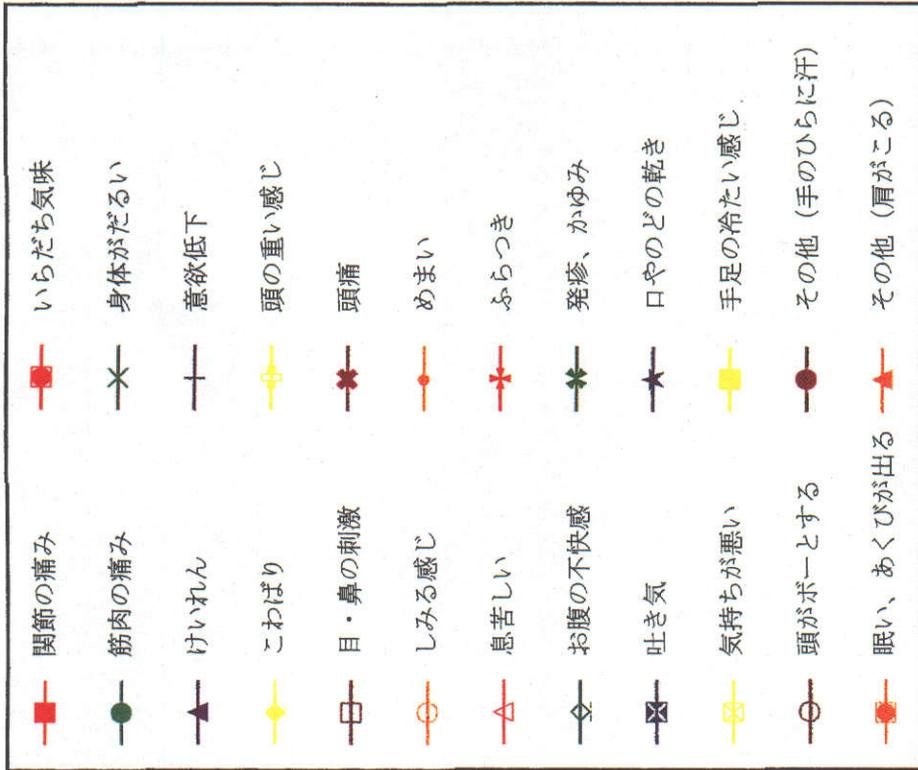 関節の痛み
筋肉の痛み
けいれん
こわばり
目・鼻の刺激
しみる感じ
息苦しい
お腹の不快感
吐き気
気持ちが悪い
頭がボーとする
眠い、あくびが出る
いらだち気味
身体がだるい
意欲低下
頭の重い感じ
頭痛
めまい
ふらつき
発疹、かゆみ
口やのどの乾き
手足の冷たい感じ
その他（手のひらに汗）
その他（肩がこる）